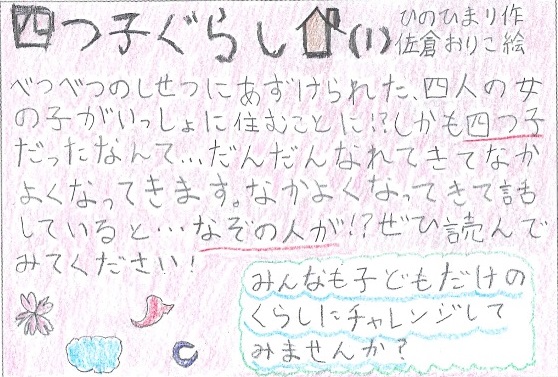 四つ子ぐらし(1)
ひのひまり作
佐倉おりこ絵
べつべつのしせつにあずけられた、四人の女
の子がいっしょに住むことに!?しかも四つ子
だったなんて…だんだんなれてきてなか
よくなってきます。なかよくなってきて話
していると…なぞの人が!?ぜひ読んで
みてください!
みんなも子どもだけの
くらしにチャレンジして
みませんか?